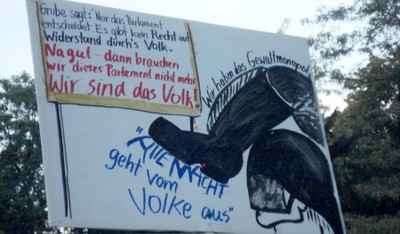 Grube sagt: Nur das Parlament
entscheidet. Es gibt kein Recht auf
Widerstand dürch's Volk.
Nagut - dann brauchen
wir dieses Parlament nicht mehr
Wir sind das Volk!
Wir haben das Gewaltmonopol
"ALLE MACHT
geht vom
Volke aus"